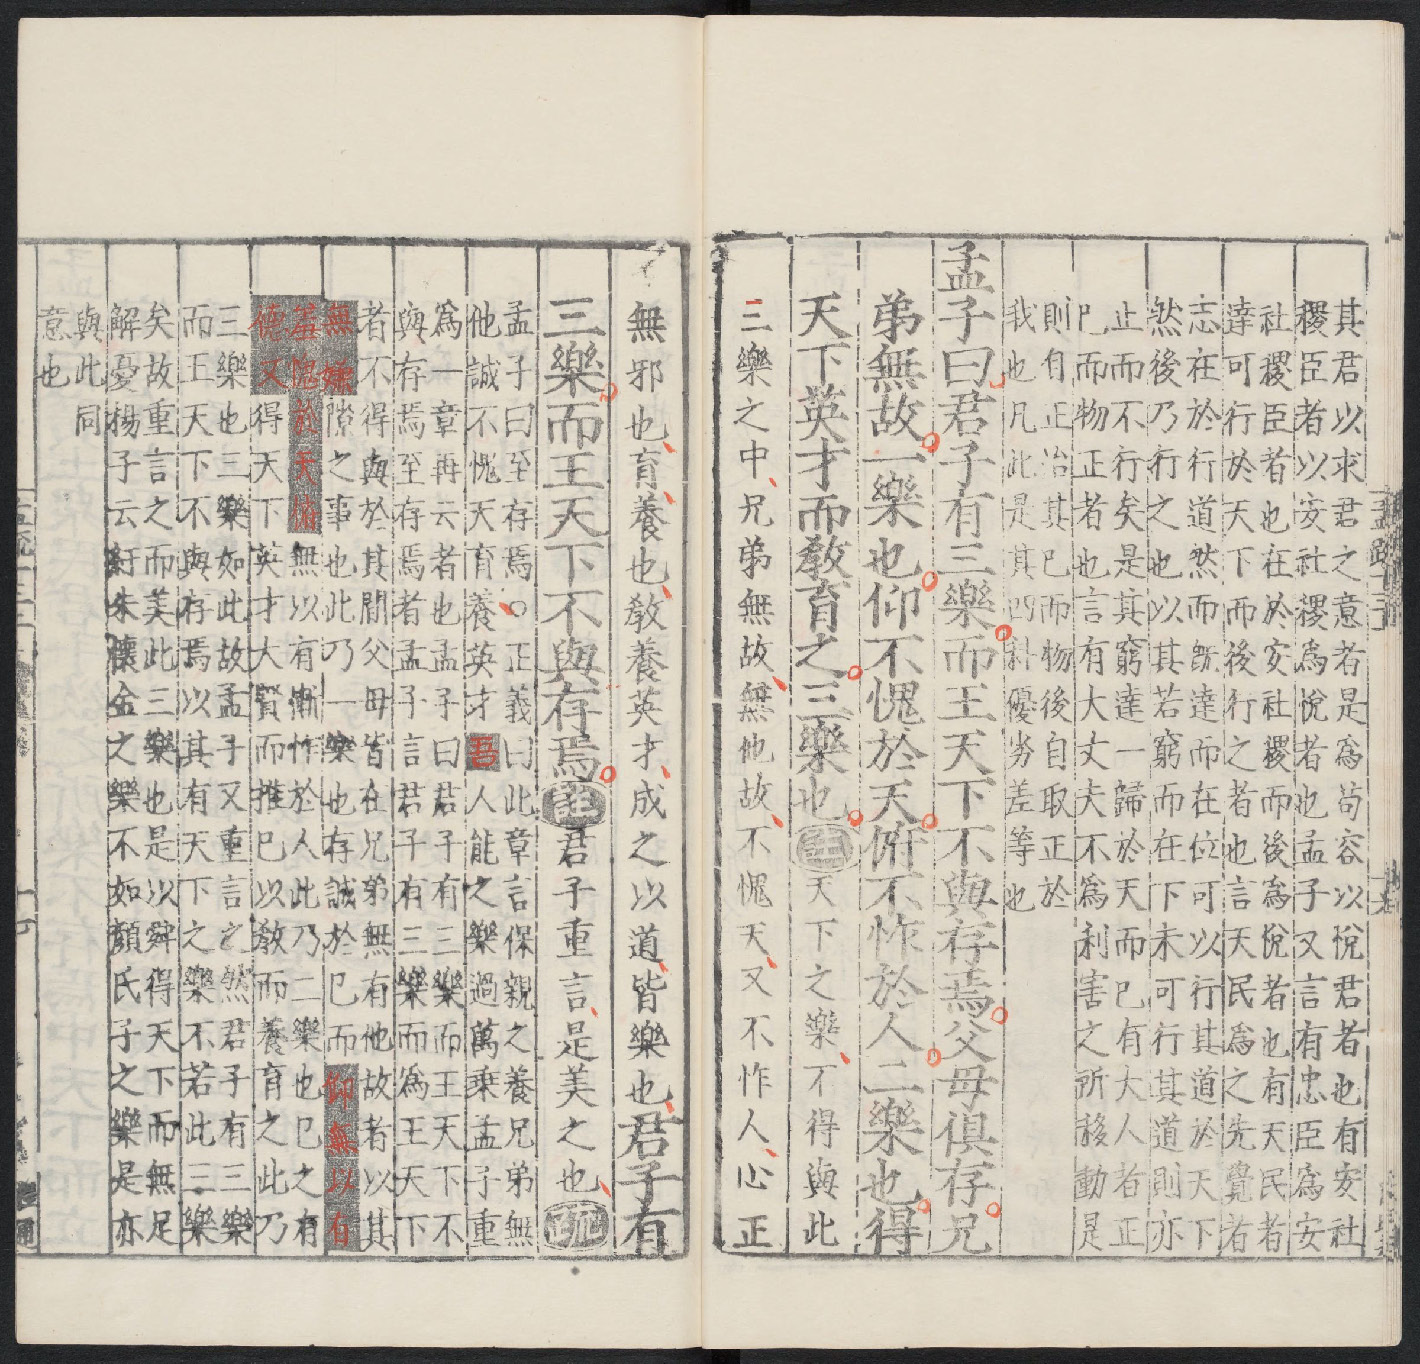 其君以求君之意者是爲苟容以悅君者也有安社
稷臣者以安社稷爲悅者也孟子又言有忠臣爲安
社稷臣者也在於安社稷而後爲悅者也有天民者
達可行於天下而後行之者也言天民爲之先覺者
志在於行道然而旣達而在位可以行其道於天下
然後乃行之也以其若窮而在下未可行其道則亦
止而不行矣是其窮達一歸於天而已有大人者正
已而物正者也言有大丈夫不爲利害之所移動是
則自正治其已而物後自取正於
我也凡此是其四科優劣差等也
孟子曰君子有三樂而王天下不與存焉父母俱存兄
弟無故一樂也仰不愧於天俯不怍於人二樂也得
天下英才而敎育之三樂也註天下之樂不得與此
三樂之中兄弟無故無他故不愧天又不怍人心正
無邪也育養也敎養英才成之以道皆樂也君子有
三樂而王天下不與存焉註君子重言是美之也疏
孟子曰至存焉○正義曰此章言保親之養兄弟無
他誠不愧天育養英才吾人能之樂過萬乘孟子重
爲一章再云者也孟子曰君子有三樂而王天下不
與存焉至存焉者孟子言君子有三樂而爲王天下
者不得與於其間父母皆在兄弟無有他故者以其
無嫌隙之事也此乃一樂也存誠於已而仰無以有
羞愧於天俯無以有慚怍於人此乃二樂也已之有
德又得天下英才大賢而推已以敎而養育之此乃
三樂也三樂如此故孟子又重言之然君子有三樂
而王天下不與存焉以其有天下之樂不若此三樂
矣故重言之而美此三樂也是以舜得天下而無足
解憂揚子云紆朱懷金之樂不如顏氏子之樂是亦
與此同
意也